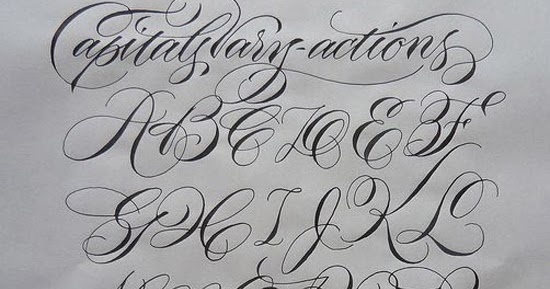 Capitals Vary-actions
A B C D E F
G H I J K L